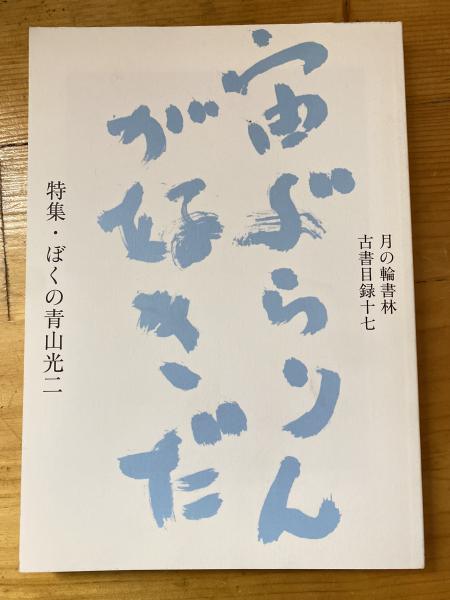 月の輪書林
古書目録十七
宙ぶらりん
が好きだ
特集・ぼくの青山光二